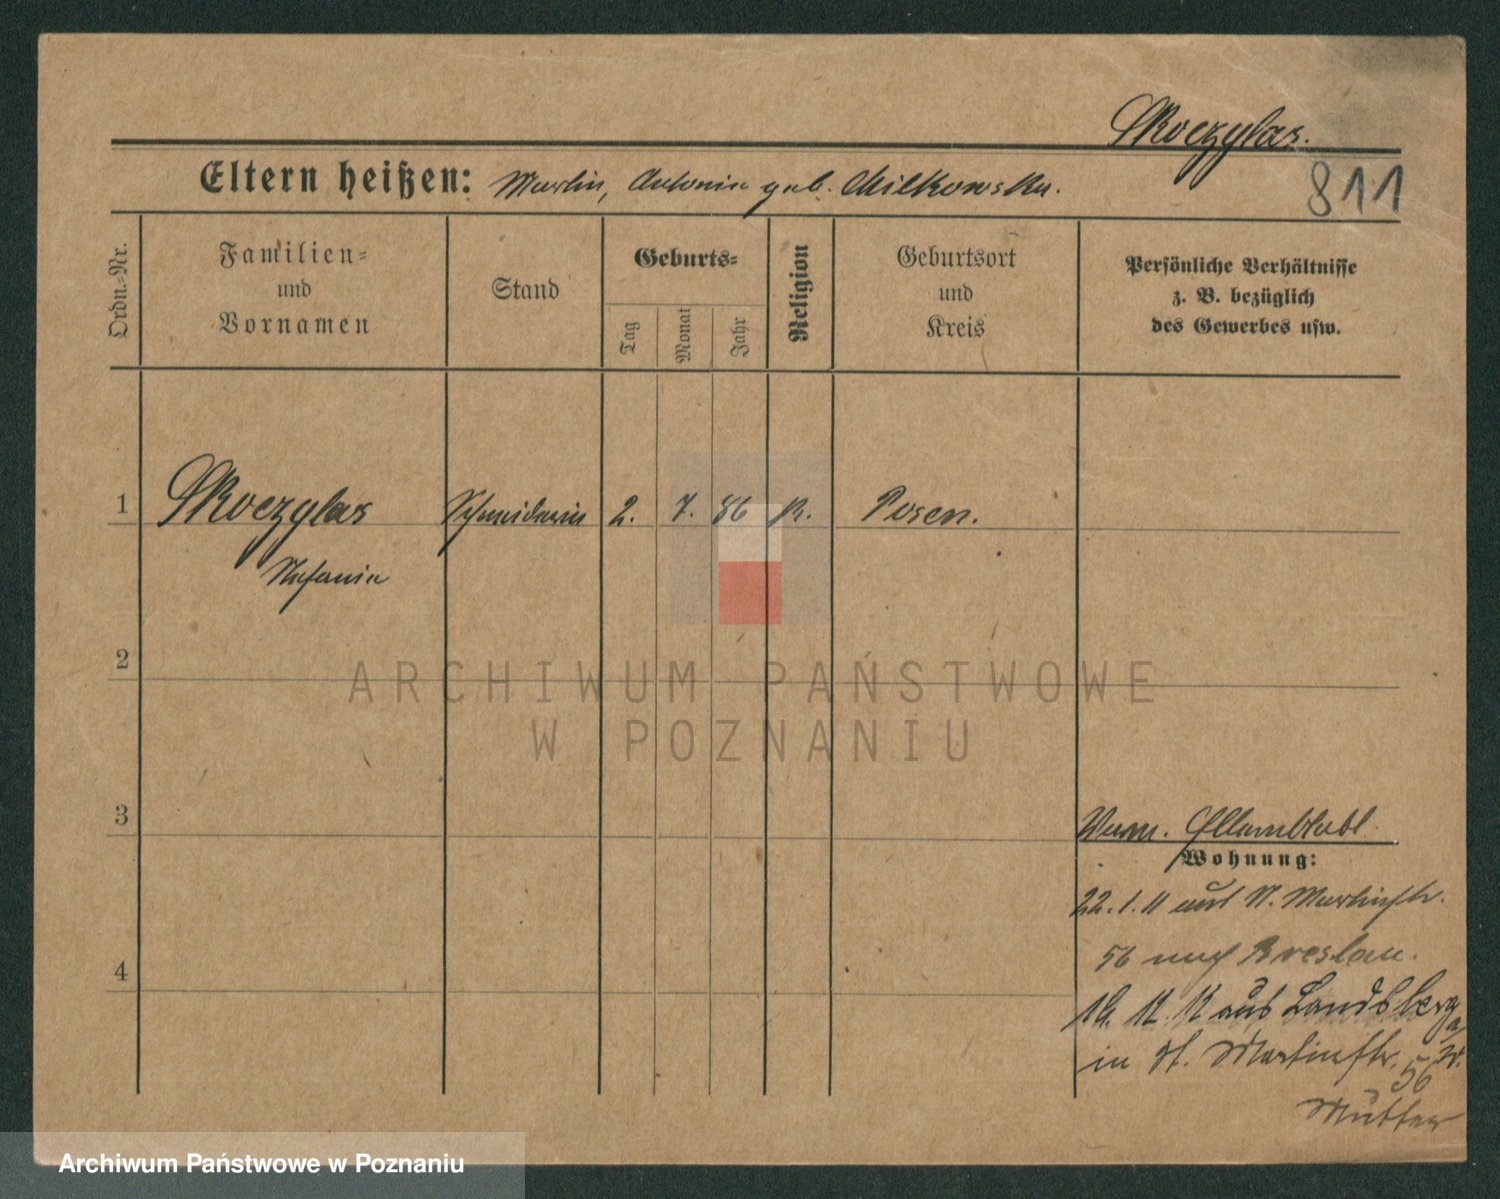 Skoczylas.
Eltern heißen: Martin, Antonie geb. Milkowska.
811
Ordn.-Nr.
Familien-
und
Vornamen
Stand
Geburts-
Tag
Monat
Jahr
Religion
Geburtsort
und
Kreis
Persönliche Verhältnisse
z. B. bezüglich
des Gewerbes usw.
1 Skoczylas Schneiderin 2. 7. 86 k. Posen.
Stefanie
2
ARCHIWUM PAŃSTWOWE
W POZNANIU
3
Wohnung:
22. 1. 11 aus St. Martinstr.
56 nach Breslau.
12 aus Landsberg
a/W.
in St. Martinstr. 56
Mutter
4
Archiwum Państwowe w Poznaniu